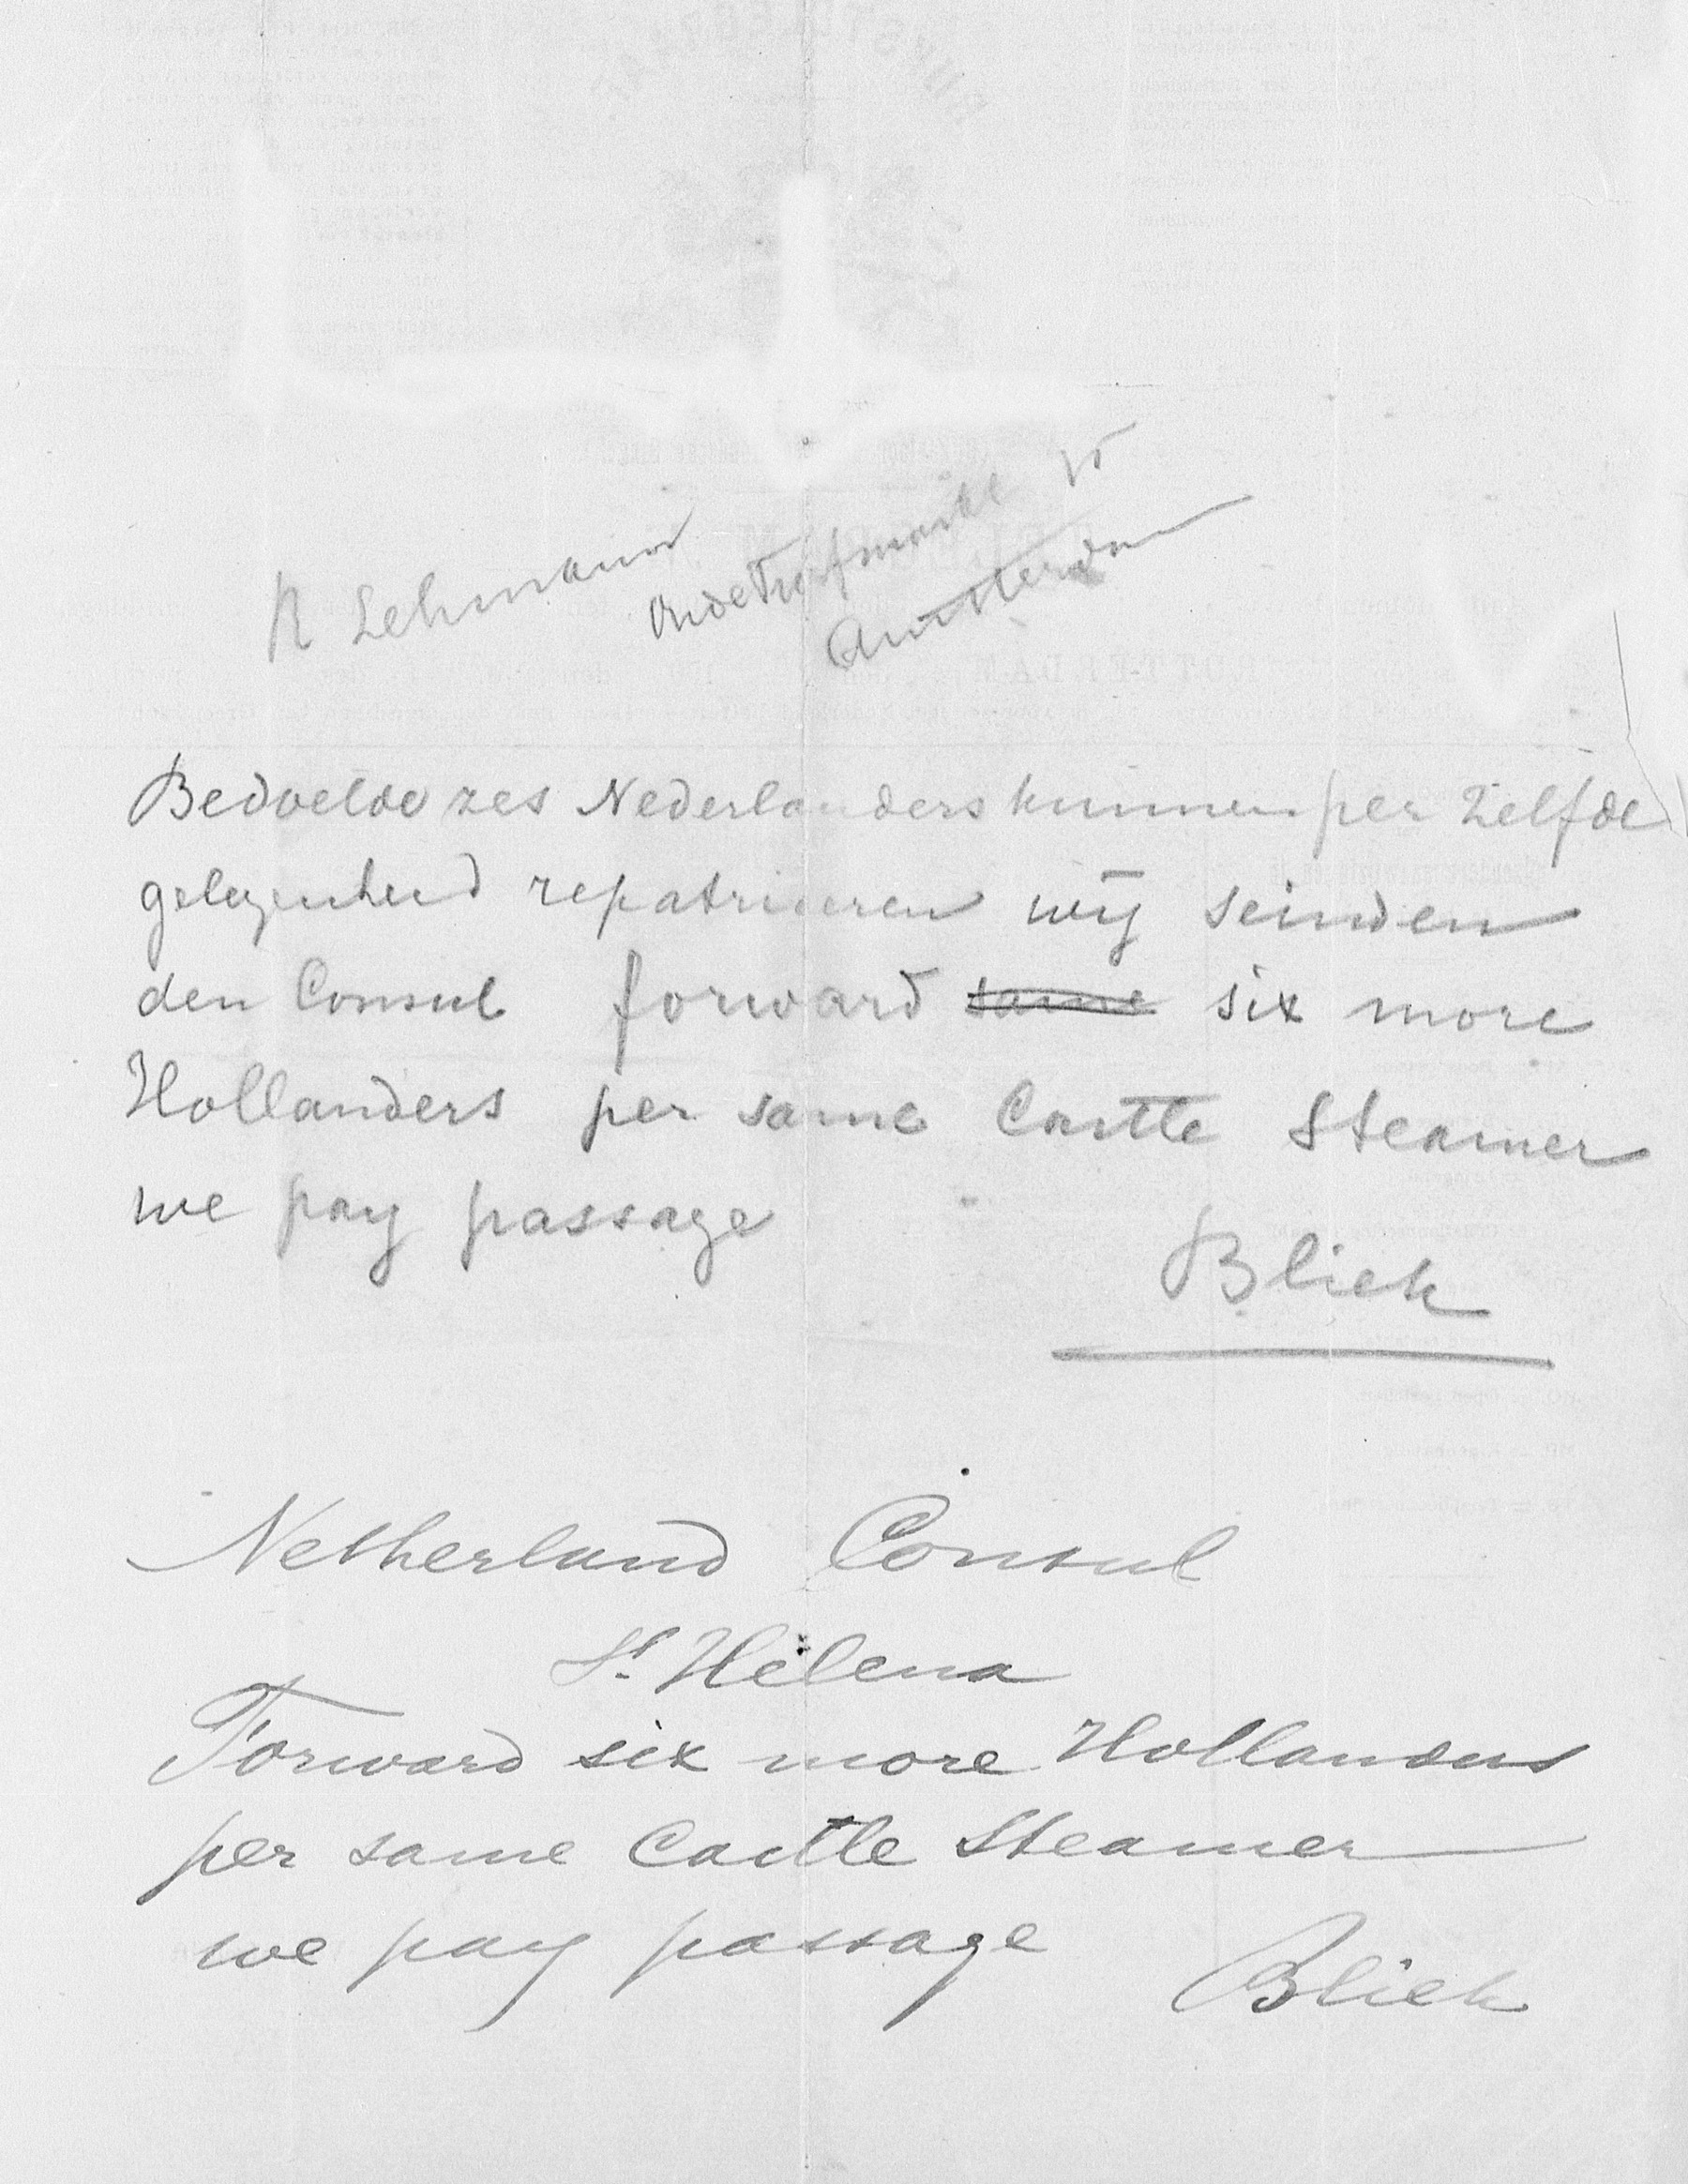 R Lehmann
Oudeturfmarkt 15
Amsterdam
Bedoelde zes Nederlanders kunnen per zelfde
gelegenheid repatrieeren wij seinden
den Consul forward same six more
Hollanders per same Castle Steamer
we pay passage
Bliek
Netherland Consul
St. Helena
Forward six more Hollanders
per same Castle Steamer
we pay passage
Bliek